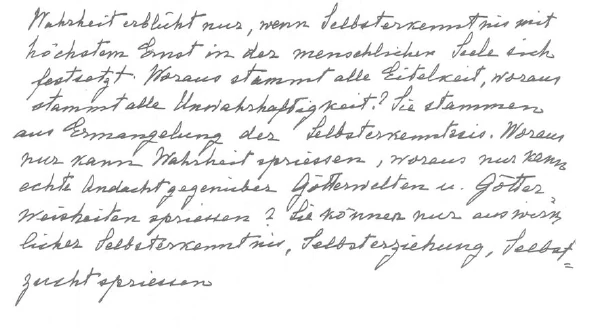 Wahrheit erblüht nur, wenn Selbsterkenntnis mit
höchstem Ernst in der menschlichen Seele sich
festsetzt. Woraus stammt alle Eitelkeit, woraus
stammt alle Unwahrhaftigkeit? Sie stammen
aus Ermangelung der Selbsterkenntnis. Woraus
nur kann Wahrheit spriessen, woraus nur kann
echte Andacht gegenüber Götterwelten u. Götter
weisheiten spriessen? Sie können nur aus wirk
licher Selbsterkenntnis, Selbsterziehung, Selbst=
zucht spriessen